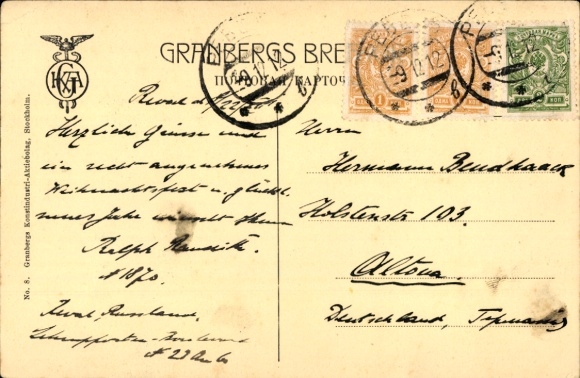 GRANBERGS BRE
ПОЧТОВАЯ КАРТОЧ
No. 8. Granbergs Konstindustri-Aktiebolag, Stockholm.
Reval d.
Herzliche Grüsse und
ein recht angenehmes
Weihnachtsfest u. glückl.
neues Jahr wünscht Ihnen
Ralph
# 1870.
Reval, Russland,
Herrn
Hermann Bendhaack
Holstenstr 103.
Altona.
Deutschland,
9 12 12
9.12.12